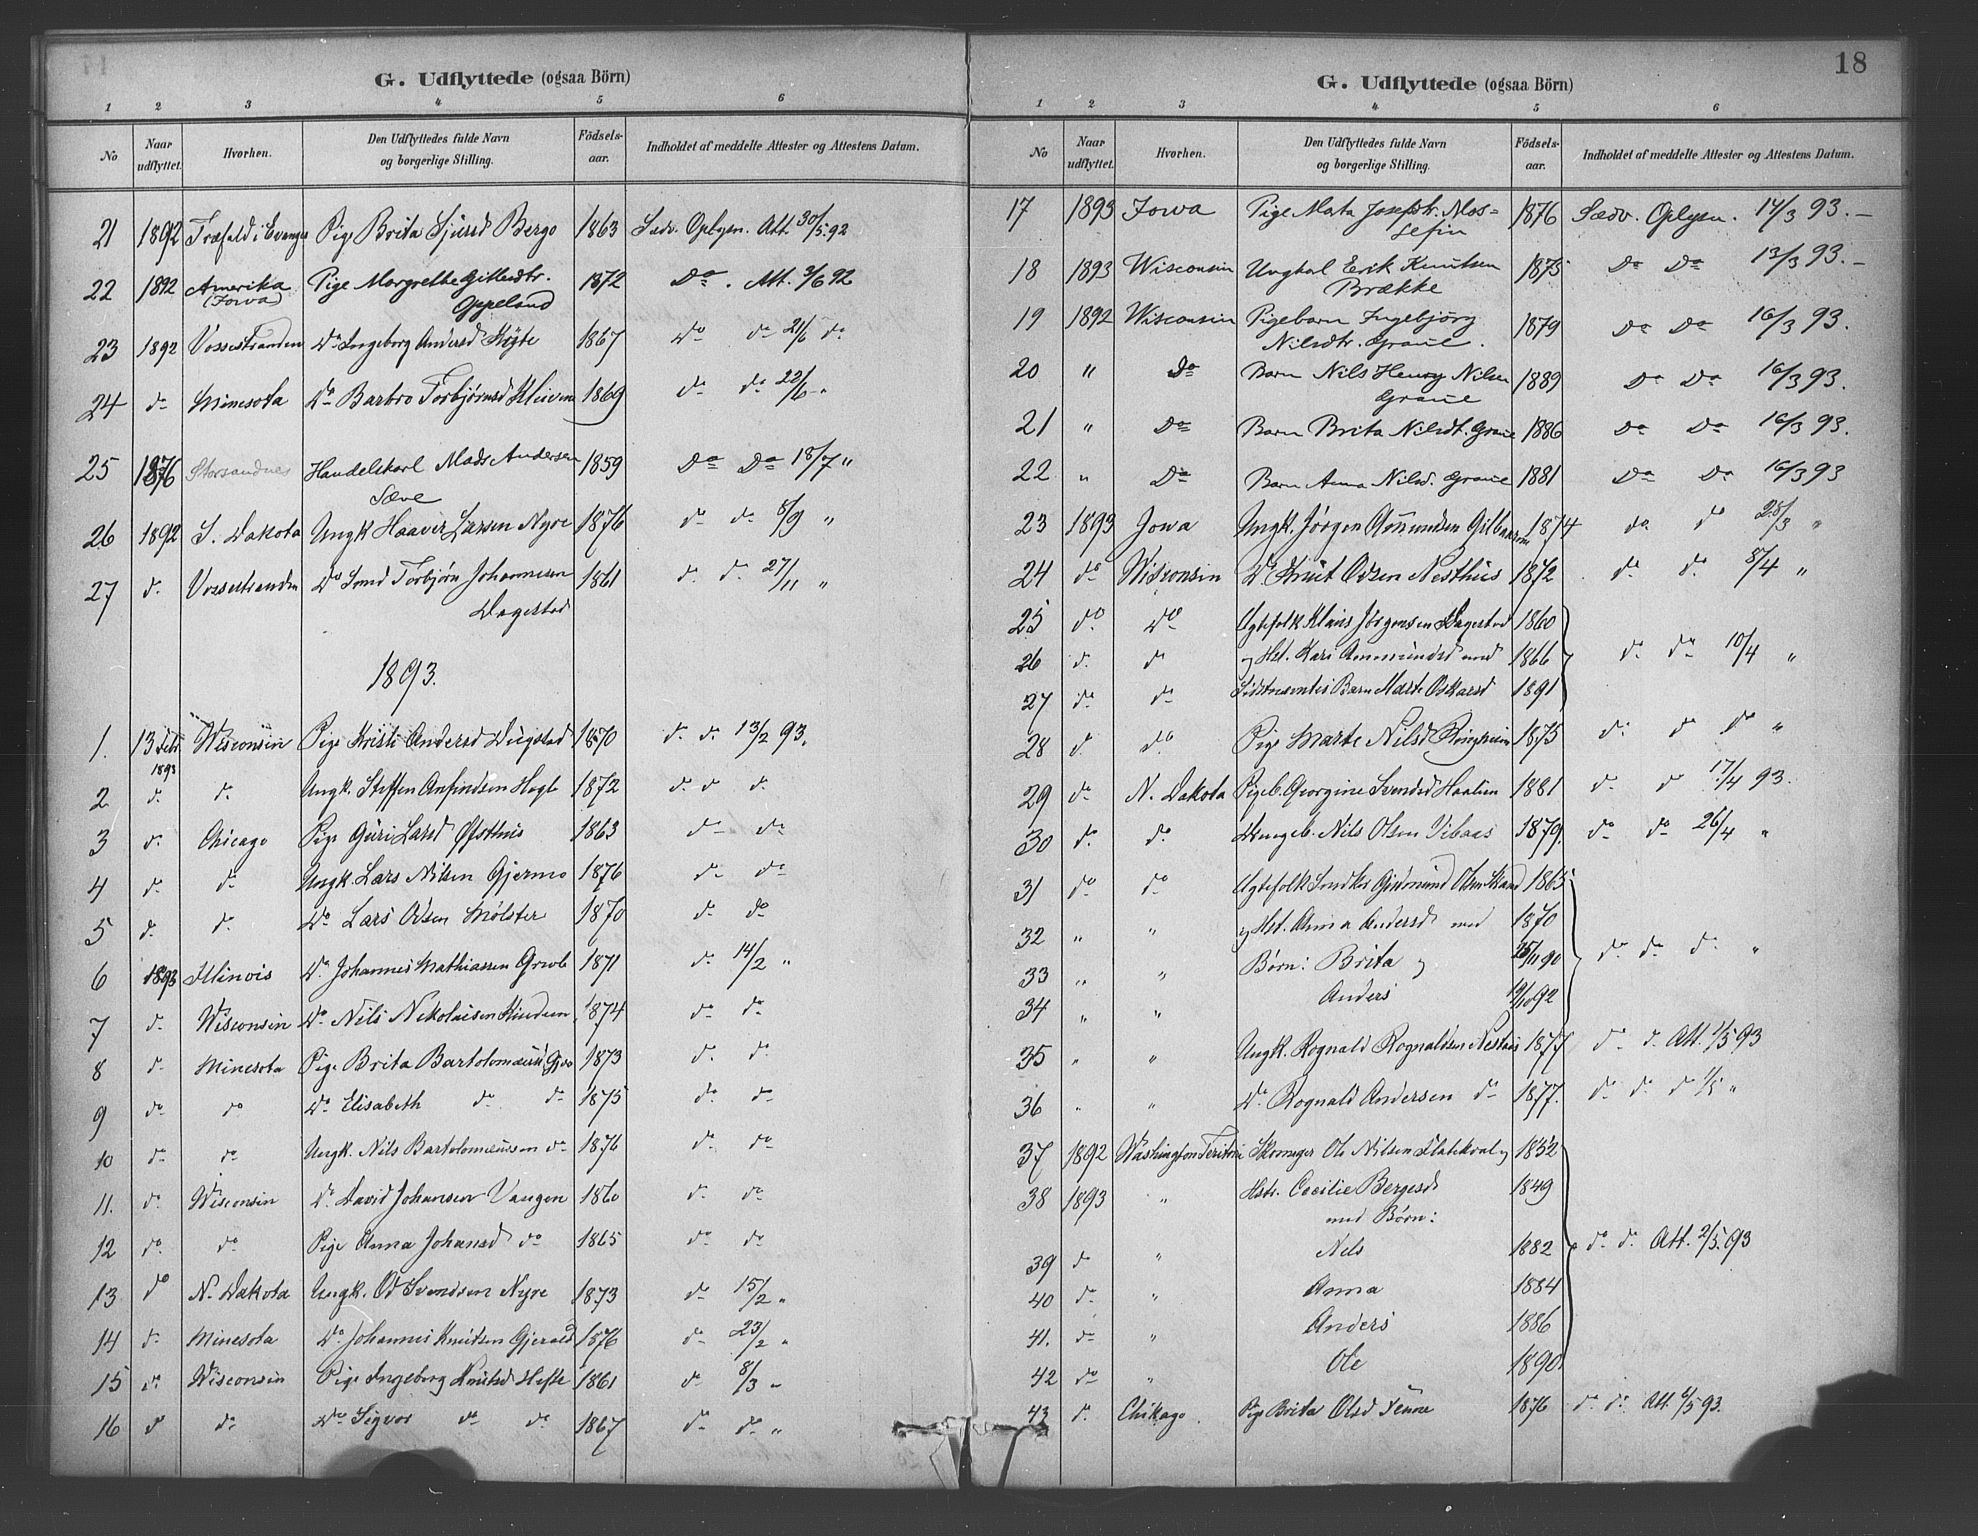 G. Udflyttede (ogsaa Börn)
1 2 3 4 5 6
No Naar udflyttet. Hvorhen. Den Udflyttedes fulde Navn og borgerlige Stilling. Födsels-aar. Indholdet af meddelte Attester og Attestens Datum.
21 1892 Træfald i Evanger Pige Brita Sjursd Bergo 1863 Sædv. Oplysn. Att. 30/5 92
22 1892 Amerika (Iowa) Pige Margrethe Gitlesdtr. Oppeland 1872 Do . Att. 3/6 92
23 1892 Vossestranden Do Ingeborg Andersd Kyte 1867 Do do 21/6 do
24 do Minesota Do Barbro Torbjørnsd Kleiven 1869 do do 22/6 "
25 1876 Storsandnes Handelskarl Mads Andersen Sæve 1859 Do Do 18/7 "
26 1892 S. Dakota Ungk Haaver Larsen Nyre 1876 do do 8/9 "
27 d. Vossestranden Do Smed Torbjørn Johannesen Dagestad 1861 d. d. 27/11 "
1893.
1. 13 Febr 1893 Wisconsin Pige Kristi Andersd Dugstad 1870 d. d. 13/2 93.
2 d. d. Ungk. Steffen Anfindsen Hegle 1872 d. d d.
3 d. Chicago Pige Guri Larsd Østhus 1863 d- do
4 d. d. Ungk. Lars Nilsen Gjerme 1876 d. do
5 d. d. Do Lars Odsen Mølster 1870 do do
6 1893 Illinois Do Johannes Mathiassen 1871 do 14/2 "
7 d. Wisconsin Do Nils Nikolaisen 1874 do do
8 d. Minesota Pige Brita Bartolomæusd 1873 d. d.
9 do do Do Elisabeth do do 1875 do do
10 do do Ungk. Nils Bartolomæussen do 1876 do do
11. do Wisconsin Do David Johansen Vangen 1860 d. do
12 do do Pige Anna Johansd do 1865 do do
13 do N. Dakota Ungk. Od Svendsen Nyre 1873 do 15/2 "
14 d. Minesota Do Johannes Knutsen Gjerald 1876 do 23/2 "
15 d. Wisconsin Pige Ingeborg Knutsd Hefte 1861 do 8/3 "
16 d do Do Sigvor do do 1867 do do "
18
G. Udflyttede (ogsaa Börn)
1 2 3 4 5 6
No Naar udflyttet. Hvorhen. Den Udflyttedes fulde Navn og borgerlige Stilling. Födsels-aar. Indholdet af meddelte Attester og Attestens Datum.
17 1893 Iowa Pige Marta Josefstr. Mos-sefin 1876 Sædv. Oplysn. 14/3 93.-
18 1893 Wisconsin Ungkarl Erik Knutsen Brække 1875 Do Do 13/3 93.-
19 1892 Wisconsin Pigebarn Ingebjørg Nilsdtr. Graue. 1879 Do Do 16/3 93.
20 " Do Barn Nils Henry Nilsen Graue 1889 Do Do 16/3 93.
21 " Do Barn Brita Nilsdt. Graue 1886 Do Do 16/3 93.
22 " Do Barn Anna Nilsd. Graue 1881 Do Do 16/3 93
23 1893 Jowa Ungk. Jørgen Amunden 1874 do do 28/3 "
24 do Wisconsin Do Knut Odsen Nesthus 1872 do do 8/4 "
25 do Do Ægtefolk Klaus Jørgensen Dagestad 1860
26 d. d og Hst. Kari Ammundsd med 1866 do do 10/4 "
27 do do Sidstnævntes Barn Marte Oskarsd 1891
28 d do Pige Marte Nilsd Ringheim 1875 d. d do "
29 do N. Dakota Pigeb. Georgine Svendsd 1881 d. d 17/4 93.
30 do do Drengeb. Nils Olsen Vibaas 1879. do do 26/4 "
31 do do Ægtefolk Gudmund Olsen 1865
32 " " og Hst. Anna Andersd med 1870
33 " " Børn: Brita og 25/11 90 do do d. "
34 " " Anders 19/10 92
35 " " Ungk. Rognald Rognaldsen Nestaas 1877 do d. Att. 1/5 93
36 " " Do Rognald Andersen do 1877. do do d 1/5 "
37 1892 Washington Teritori Skomager Ole Nilsen Flatekval og 1852
38 1893 " Hstr. Cecilie Bergesd 1849
med Børn:
39 d " Nels 1882 do d. Att. 2/5.93
40 do " Anna 1884
41. do " Anders 1886
42 do " Ole 1890.
43 d. Chikago. Pige Brita Olsd 1876 d. d. Att. 6/5 93.